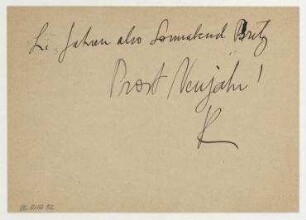 Li. fahren also Sonnabend Britz
Prost Neujahr!
K